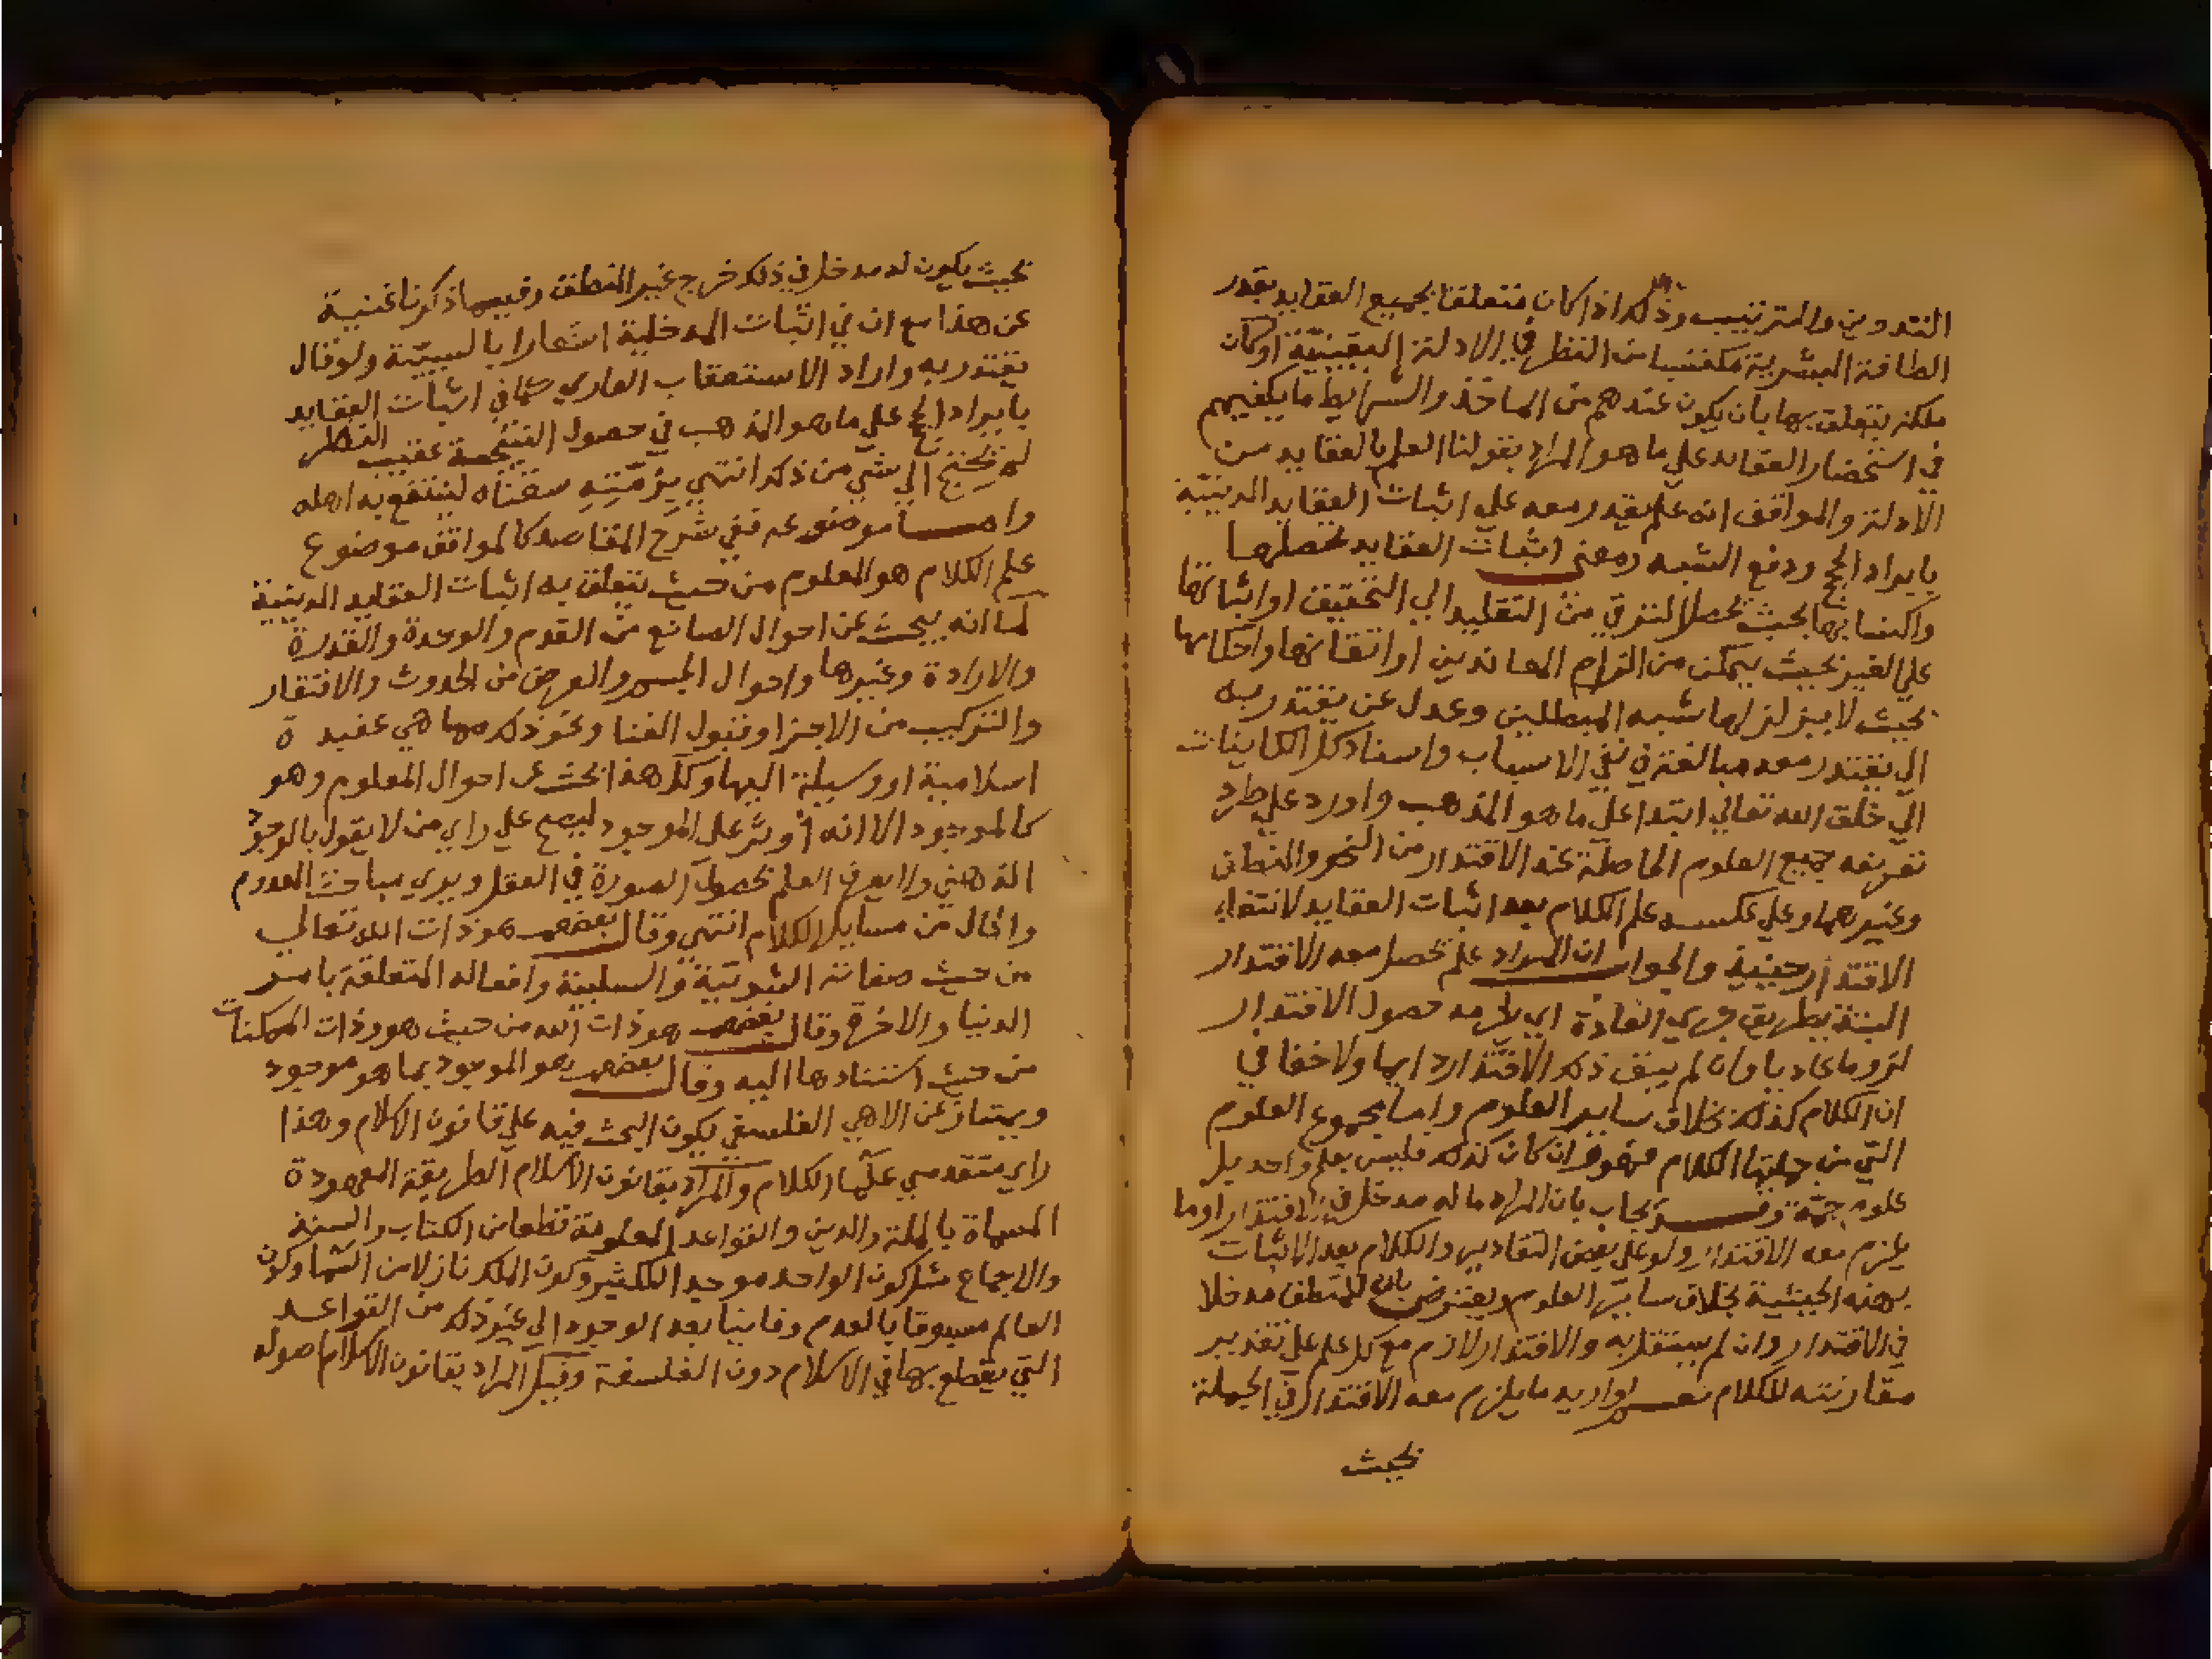 التدوين والترتيب وذلك اذا كان متعلقا بجميع العقايد بقدر
الطاقة البشرية مكتسبا من النظر في الادلة اليقينية او كان
ملكة يتعلق بها بان يكون عندهم من الماخذ والشرايط ما يكفيهم
في استحضار العقايد علي ما هو المراد بقولنا العلم بالعقايد من
الادلة والمواقف انه علم يقدر معه علي اثبات العقايد الدينية
بايراد الحجج ودفع الشبه ومعني اثبات العقايد تحصلها
واكتسابها بحيث يحصل الترقي من التقليد الي التحقيق او اثباتها
علي الغير بحيث يتمكن من الزام المعاندين او اتقانها واحكامها
بحيث لا يزلزلها شبه المبطلين وعدل عن يقتدر به
الي يقتدر معه مبالغة في نفي الاسباب واسناد كل الكاينات
الي خلق الله تعالي ابتدا علي ما هو المذهب واورد علي طرد
تعريفه جميع العلوم الحاصلة عند الاقتدار من النحو والمنطق
وغيرهما وعلي عكسه علم الكلام بعد اثبات العقايد لانتفاء
الاقتدار حينيذ والجواب ان المراد علم يحصل معه الاقتدار
البتة بطريق جري العادة اي يلزمه حصول الاقتدار
لزوما عاديا وان لم يبق ذلك الاقتدار دايما ولا خفا في
ان الكلام كذلك بخلاف ساير العلوم واما مجموع العلوم
التي من جملتها الكلام فهو وان كان كذلك فليس بعلم واحد بل
علوم جمة وقد يجاب بان المراد ما له مدخل في الاقتدار او ما
يلزم معه الاقتدار ولو علي بعض التقادير والكلام بعد الاثبات
بهذه الحيثية بخلاف ساير العلوم ويعترض بان للمنطق مدخلا
في الاقتدار وان لم يستقل به والاقتدار لازم مع كل علم علي تقدير
مقارنته للكلام نعم لو اريد ما يلزم معه الاقتدار في الجملة
بحيث
بحيث يكون له مدخل في ذلك خرج غير المنطق وفيما ذكرنا غنية
عن هذا مع ان في اثبات المدخلية اشعارا بالسببية ولو قال
يقتدر به واراد الاستعقاب العادي كما في اثبات العقايد
بايراد الحجج علي ما هو المذهب في حصول النتيجة عقيب النظر
لم يحتج الي شي من ذكر انتهي برمته سقناه لينتفع به اهله
واما موضوعه ففي شرح المقاصد كالمواقف موضوع
علم الكلام هو المعلوم من حيث يتعلق به اثبات العقايد الدينية
لما انه يبحث عن احوال الصانع من القدم والوحدة والقدرة
والارادة وغيرها واحوال الجسم والعرض من الحدوث والافتقار
والتركيب من الاجزا وقبول الفنا ونحو ذلك مما هي عقيدة
اسلامية او وسيلة اليها وكل هذا بحث عن احوال المعلوم وهو
كالموجود الا انه اوثر علي الموجود ليصح علي راي من لا يقول بالوجود
الذهني ولا يعرف العلم بحصول الصورة في العقل ويري مباحث المعدوم
والحال من مسايل الكلام انتهي وقال بعضهم هو ذات الله تعالي
من حيث صفاته الثبوتية والسلبية وافعاله المتعلقة بامر
الدنيا والاخرة وقال بعضهم هو ذات الله من حيث هو وذات الممكنات
من حيث استنادها اليه وقال بعضهم هو الموجود بما هو موجود
ويمتاز عن الاهي الفلسفي بكون البحث فيه علي قانون الاسلام وهذا
راي متقدمي علما الكلام والمراد بقانون الاسلام الطريقة المعهودة
المسماة بالملة والدين والقواعد المعلومة قطعا من الكتاب والسنة
والاجماع مثل كون الواحد موجد الكثير وكون الملك نازلا من السما وكون
العالم مسبوقا بالعدم وفانيا بعد الوجود الي غير ذلك من القواعد
التي يقطع بها في الاسلام دون الفلسفة وقيل المراد بقانون الاسلام اصوله